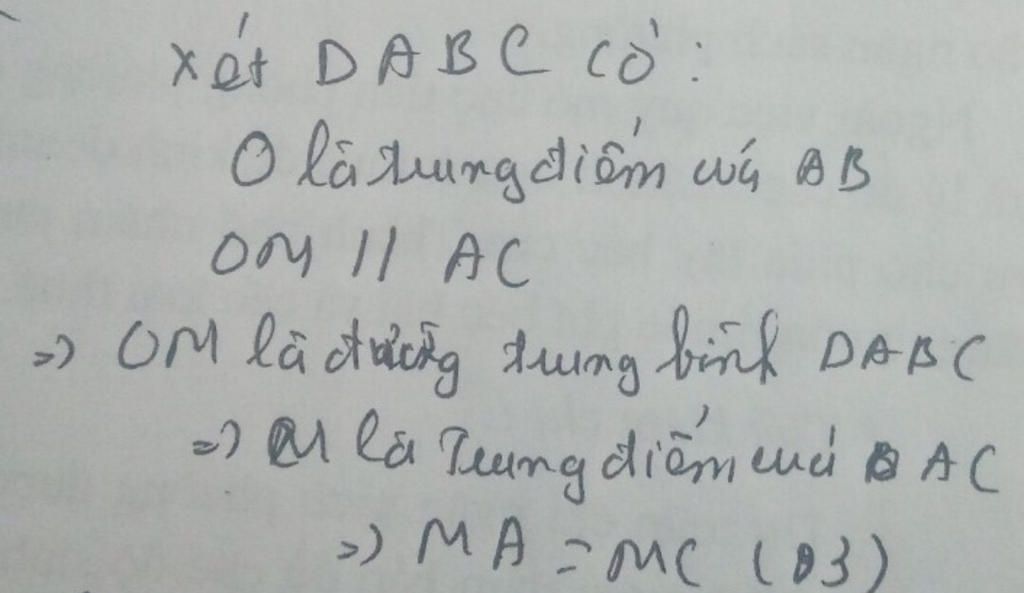 Xét DABC có:
O là trung điểm của AB
OM // AC
=> OM là đường trung bình DABC
=> M là Trung điểm của AC
=> MA = MC (03)